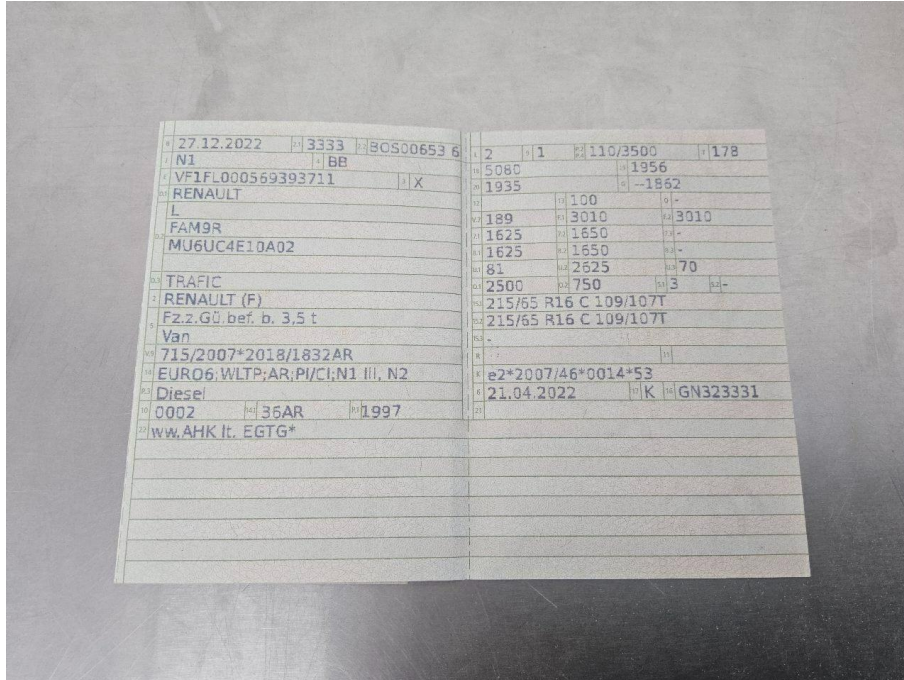 27.12.2022 3333 BOS00653 6
N1 BB
VF1FL000569393711 X
RENAULT
L
FAM9R
MU6UC4E10A02
TRAFIC
RENAULT (F)
Fz.z.Gü.bef. b. 3,5 t
Van
715/2007*2018/1832AR
EURO6;WLTP;AR;PI/CI;N1 III, N2
Diesel
0002 36AR 1997
ww.AHK lt. EGTG*
2 1 110/3500 178
5080 1956
1935 --1862
100 -
189 3010 3010
1625 1650 -
1625 1650 -
81 2625 70
2500 750 3 -
215/65 R16 C 109/107T
215/65 R16 C 109/107T
-
-
e2*2007/46*0014*53
21.04.2022 K GN323331